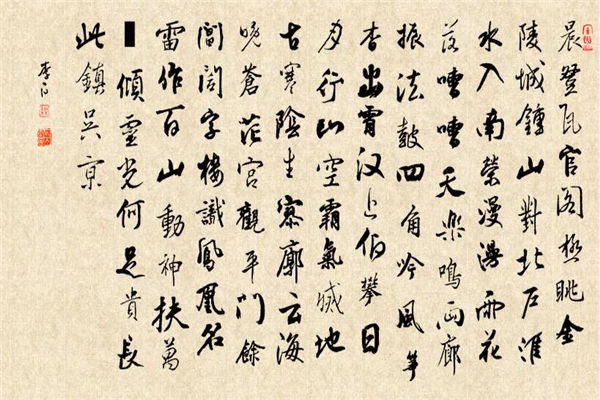 晨登瓦官閣極眺金
陵城鍾山對北戶淮
水入南榮漫漫雨花
落嘈嘈天樂鳴兩廊
振法鼓四角吟風筝
杳出霄汉上仰攀日
月行山空霸氣滅地
古寒陰生寥廓云海
晚蒼茫宮觀平門餘
閶閤字樓識鳳凰名
雷作百山動神扶萬
傾靈光何足貴長
此鎮吳京
李白